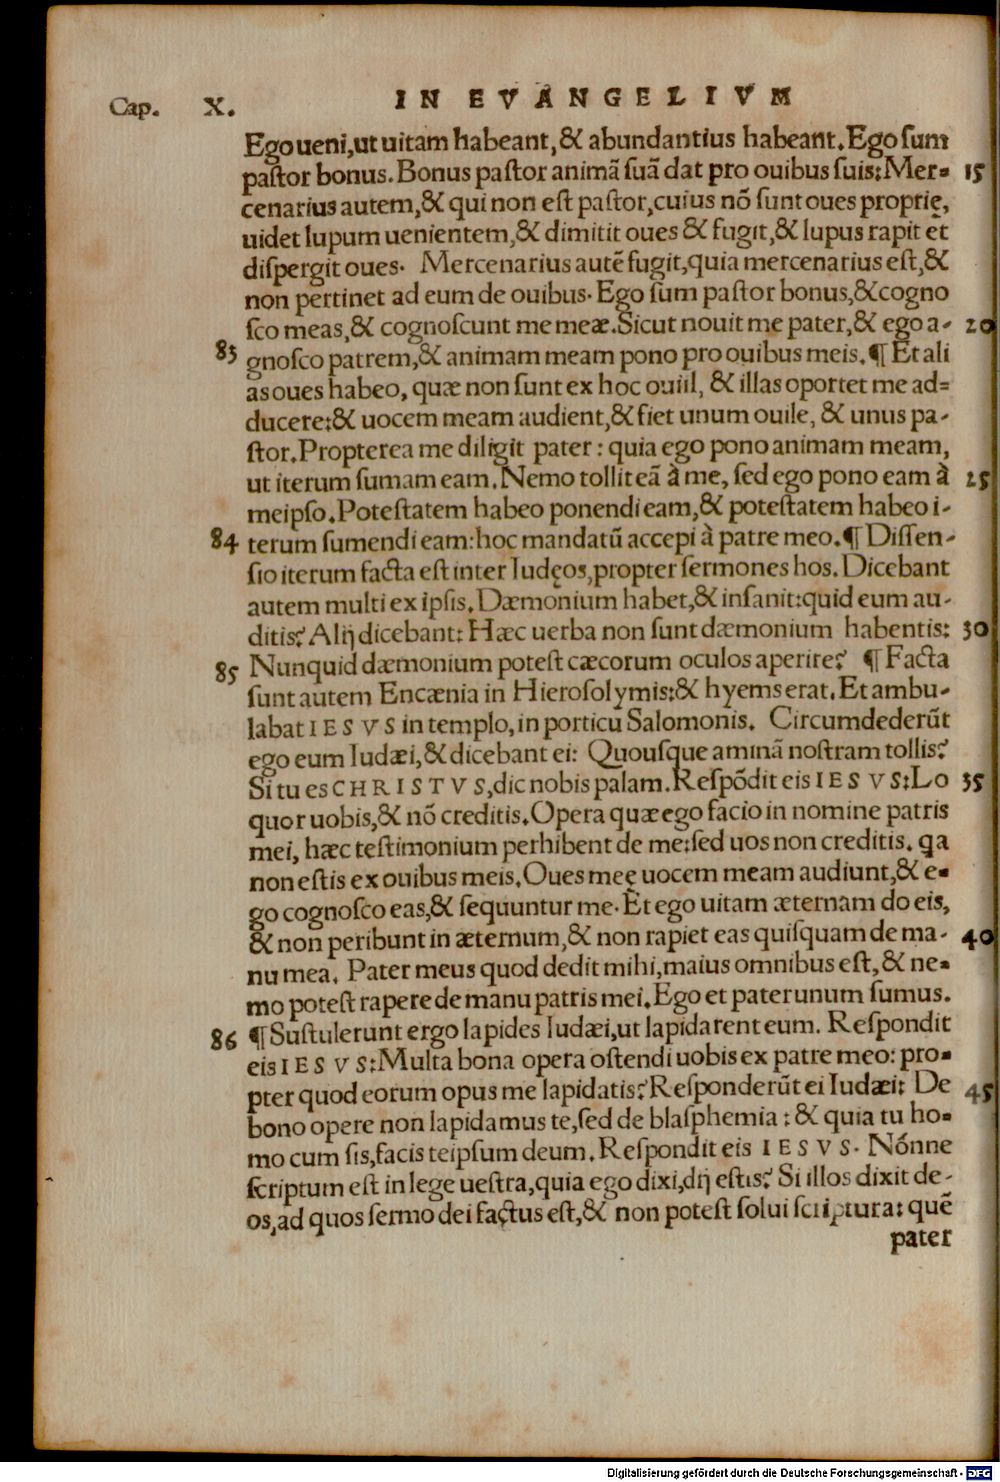 Cap. X. IN EVANGELIVM
Ego ueni, ut uitam habeant, & abundantius habeant. Ego sum
pastor bonus. Bonus pastor animã suã dat pro ouibus suis: Mer- 15
cenarius autem, & qui non est pastor, cuius nõ sunt oues proprię,
uidet lupum uenientem, & dimitit oues & fugit, & lupus rapit et
dispergit oues. Mercenarius autẽ fugit, quia mercenarius est, &
non pertinet ad eum de ouibus. Ego sum pastor bonus, & cogno
sco meas, & cognoscunt me meæ. Sicut nouit me pater, & ego a- 20
83 gnosco patrem, & animam meam pono pro ouibus meis. ¶ Et ali
as oues habeo, quæ non sunt ex hoc ouiil, & illas oportet me ad=
ducere: & uocem meam audient, & fiet unum ouile, & unus pa-
stor. Propterea me diligit pater: quia ego pono animam meam,
ut iterum sumam eam. Nemo tollit eã à me, sed ego pono eam à 25
meipso. Potestatem habeo ponendi eam, & potestatem habeo i-
84 terum sumendi eam: hoc mandatũ accepi à patre meo. ¶ Dissen-
sio iterum facta est inter Iudęos, propter sermones hos. Dicebant
autem multi ex ipsis. Dæmonium habet, & insanit: quid eum au-
ditis? Alij dicebant: Hæc uerba non sunt dæmonium habentis: 30
85 Nunquid dæmonium potest cæcorum oculos aperire? ¶ Facta
sunt autem Encænia in Hierosolymis: & hyems erat. Et ambu-
labat IESVS in templo, in porticu Salomonis. Circumdederũt
ego eum Iudæi, & dicebant ei: Quousque aminã nostram tollis?
Si tu es CHRISTVS, dic nobis palam. Respõdit eis IESVS: Lo 35
quor uobis, & nõ creditis. Opera quæ ego facio in nomine patris
mei, hæc testimonium perhibent de me: sed uos non creditis. qa
non estis ex ouibus meis. Oues meę uocem meam audiunt, & e-
go cognosco eas, & sequuntur me. Et ego uitam æternam do eis,
& non peribunt in æternum, & non rapiet eas quisquam de ma- 40
nu mea. Pater meus quod dedit mihi, maius omnibus est, & ne-
mo potest rapere de manu patris mei. Ego et pater unum sumus.
86 ¶ Sustulerunt ergo lapides Iudæi, ut lapidarent eum. Respondit
eis IESVS: Multa bona opera ostendi uobis ex patre meo: pro-
pter quod eorum opus me lapidatis? Responderũt ei Iudæi: De 45
bono opere non lapidamus te, sed de blasphemia: & quia tu ho-
mo cum sis, facis teipsum deum. Respondit eis IESVS. Nónne
scriptum est in lege uestra, quia ego dixi, dij estis? Si illos dixit de-
os, ad quos sermo dei factus est, & non potest solui scriptura: quẽ
pater
Digitalisierung gefördert durch die Deutsche Forschungsgemeinschaft - DFG